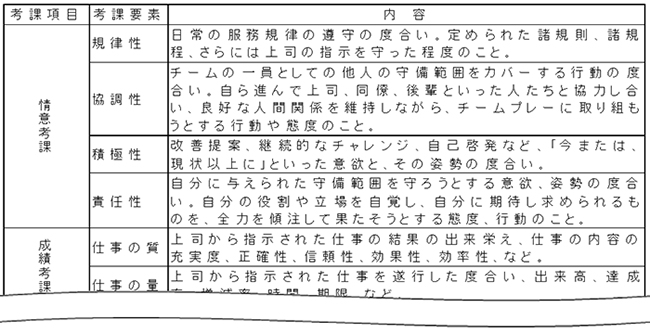 考課項目 考課要素 内容
情意考課
規律性
日常の服務規律の遵守の度合い。定められた諸規則、諸規
程、さらには上司の指示を守った程度のこと。
協調性
チームの一員としての他人の守備範囲をカバーする行動の度
合い。自ら進んで上司、同僚、後輩といった人たちと協力し合
い、良好な人間関係を維持しながら、チームプレーに取り組も
うとする行動や態度のこと。
積極性
改善提案、継続的なチャレンジ、自己啓発など、「今または、
現状以上に」といった意欲と、その姿勢の度合い。
責任性
自分に与えられた守備範囲を守ろうとする意欲、姿勢の度合
い。自分の役割や立場を自覚し、自分に期待し求められるも
のを、全力を傾注して果たそうとする態度、行動のこと。
成績考課
仕事の質
上司から指示された仕事の結果の出来栄え、仕事の内容の
充実度、正確性、信頼性、効果性、効率性、など。
仕事の量
上司から指示された仕事を遂行した度合い、出来高、達成
増減率、時間、期限、など。